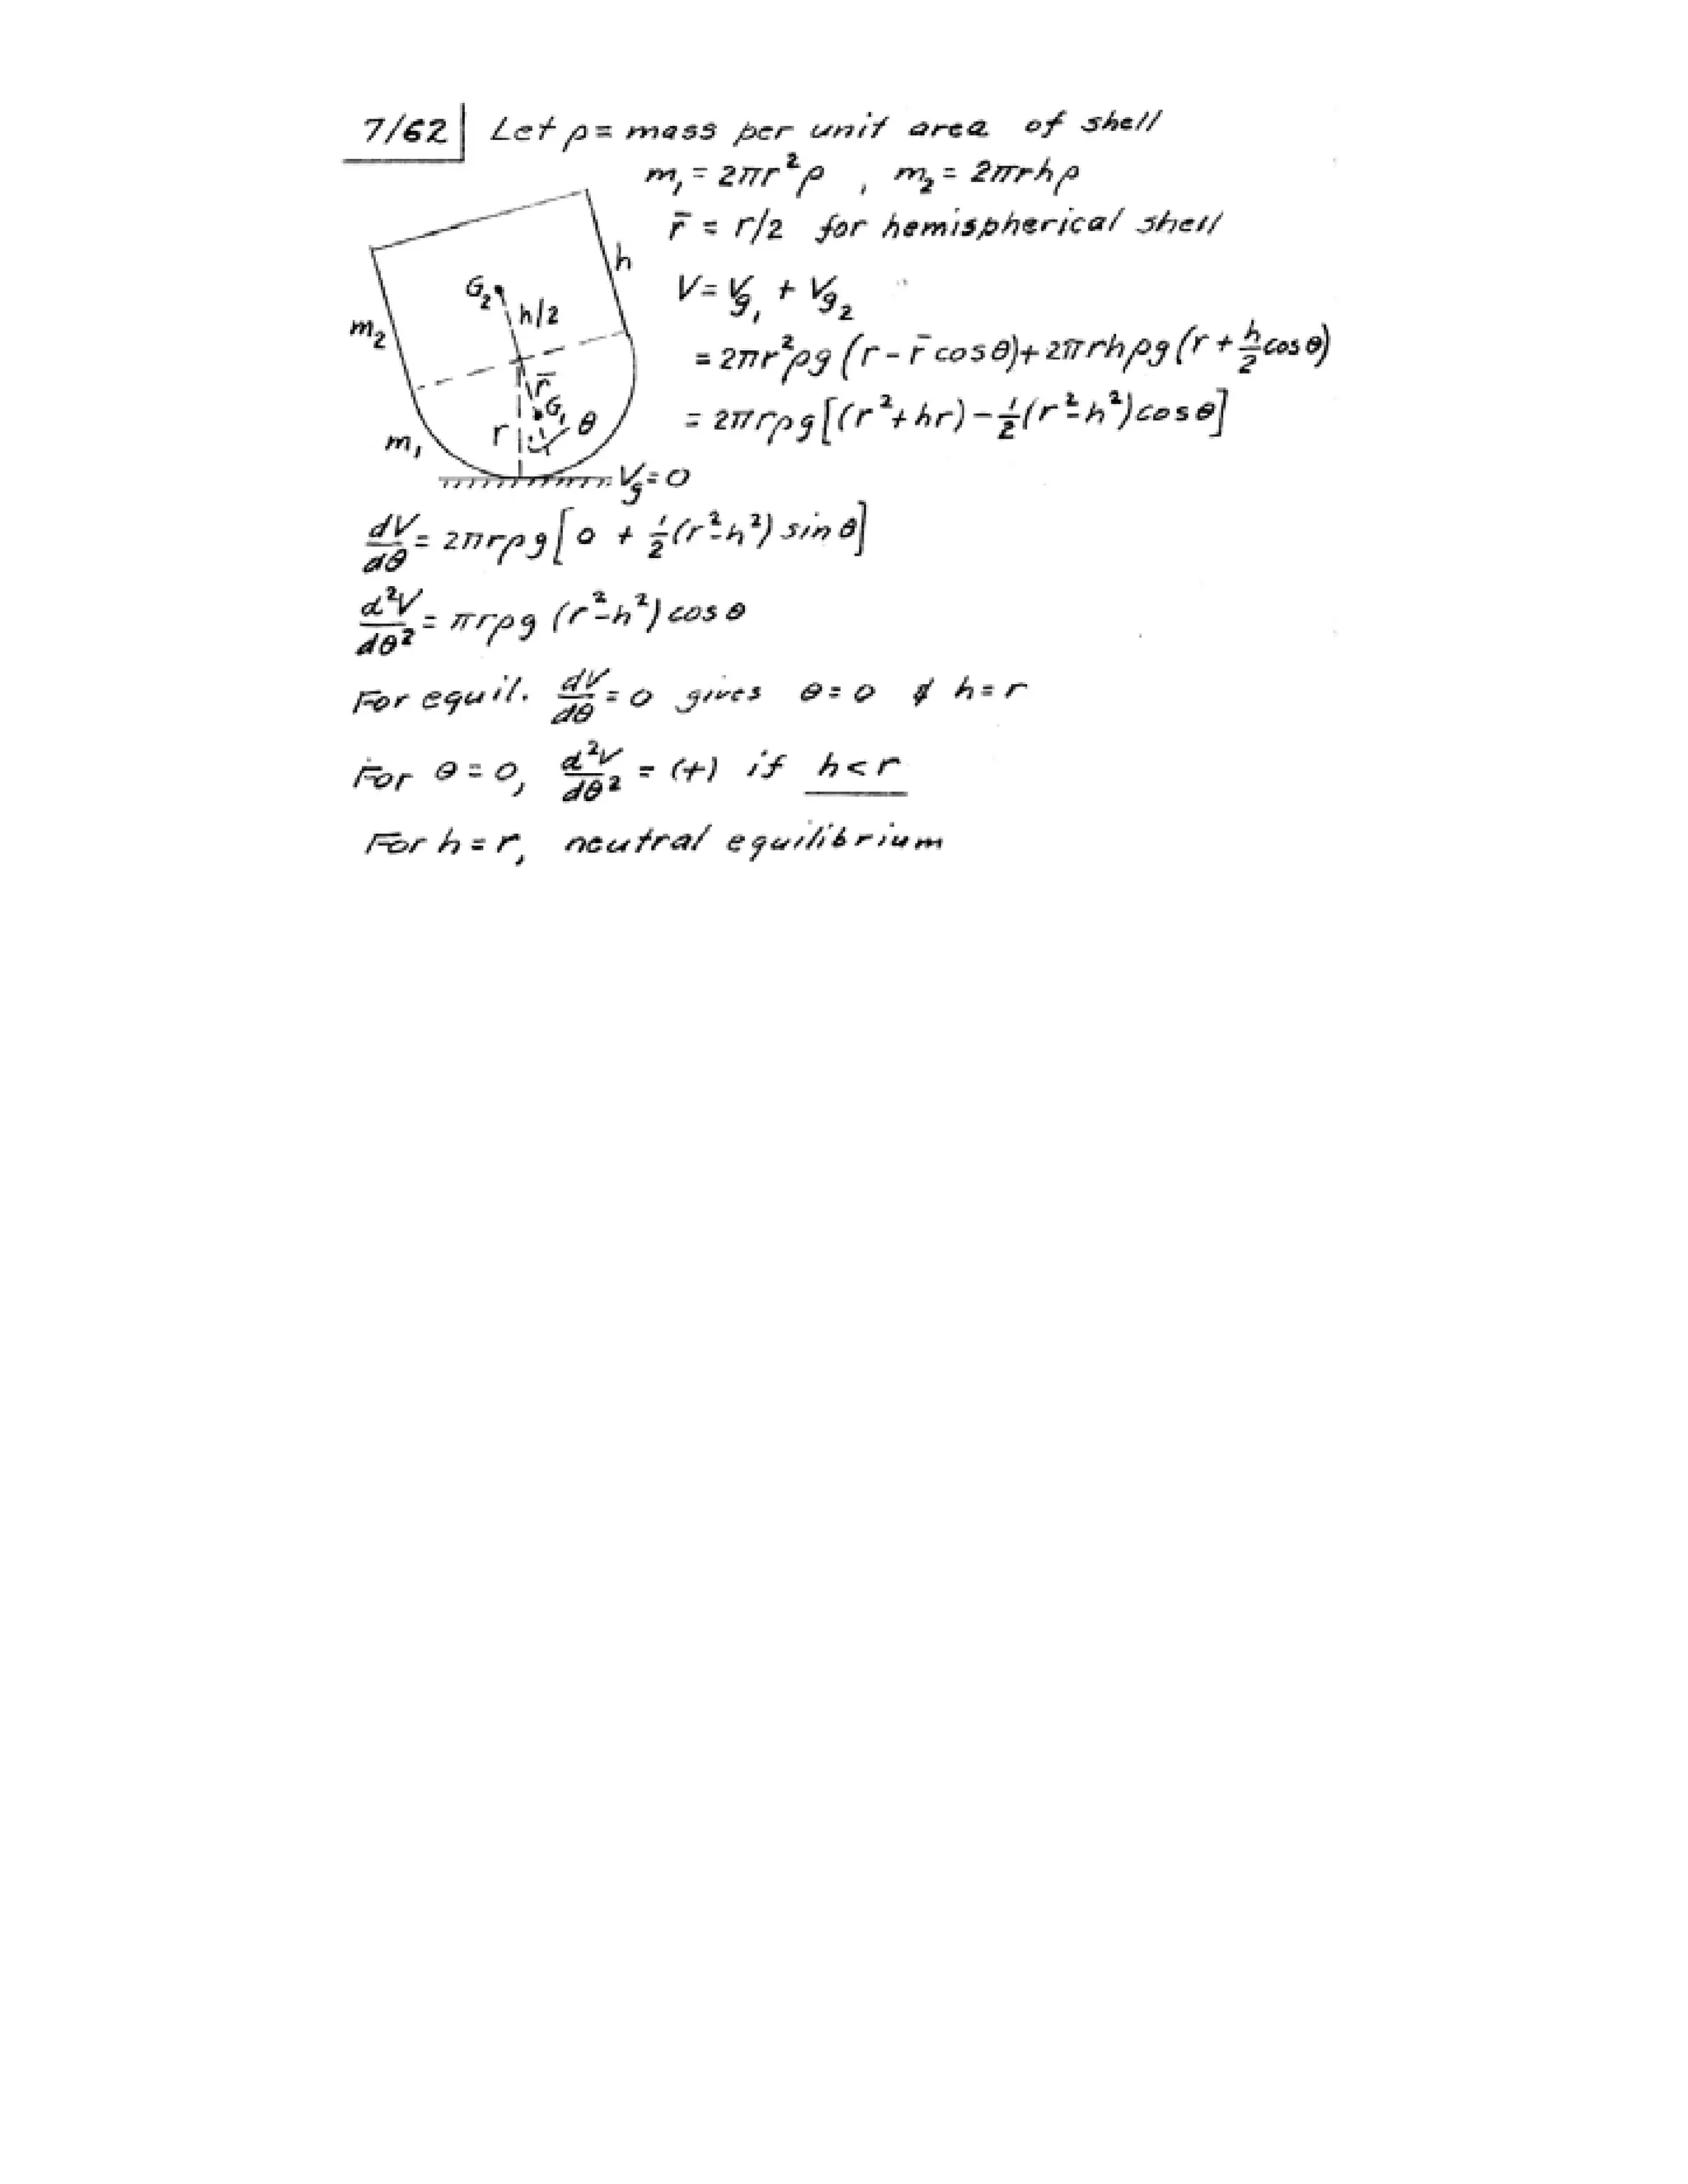 7/62 Let ρ = mass per unit area of shell
m₁ = 2πr²ρ , m₂ = 2πrhρ
r̄ = r/2 for hemispherical shell
h
G₂
h/2
m₂
V = Vg₁ + Vg₂
= 2πr²ρg (r - r̄ cos θ) + 2πrhρg (r + h/2 cos θ)
r̄
G₁
θ
r
m₁
= 2πrρg [(r² + hr) - ½(r² - h²) cos θ]
Vg = 0
dV/dθ = 2πrρg [0 + ½(r² - h²) sin θ]
d²V/dθ² = πrρg (r² - h²) cos θ
For equil. dV/dθ = 0 gives θ = 0 & h = r
For θ = 0, d²V/dθ² = (+) if h < r
For h = r, neutral equilibrium